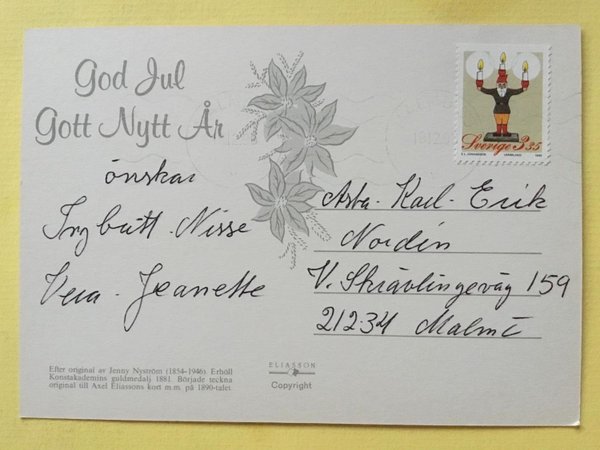 God Jul
Gott Nytt År
önskar
Ingbritt - Nisse
Vera - Jeanette
Sverige 3.35
Karl-Erik
Nordin
V. Skrävlingeväg 159
212 34 Malmö
Efter original av Jenny Nyström (1854-1946). Erhöll
Konstakademins guldmedalj 1881. Började teckna
original till Axel Eliassons kort m.m. på 1890-talet.
ELIASSON
Copyright